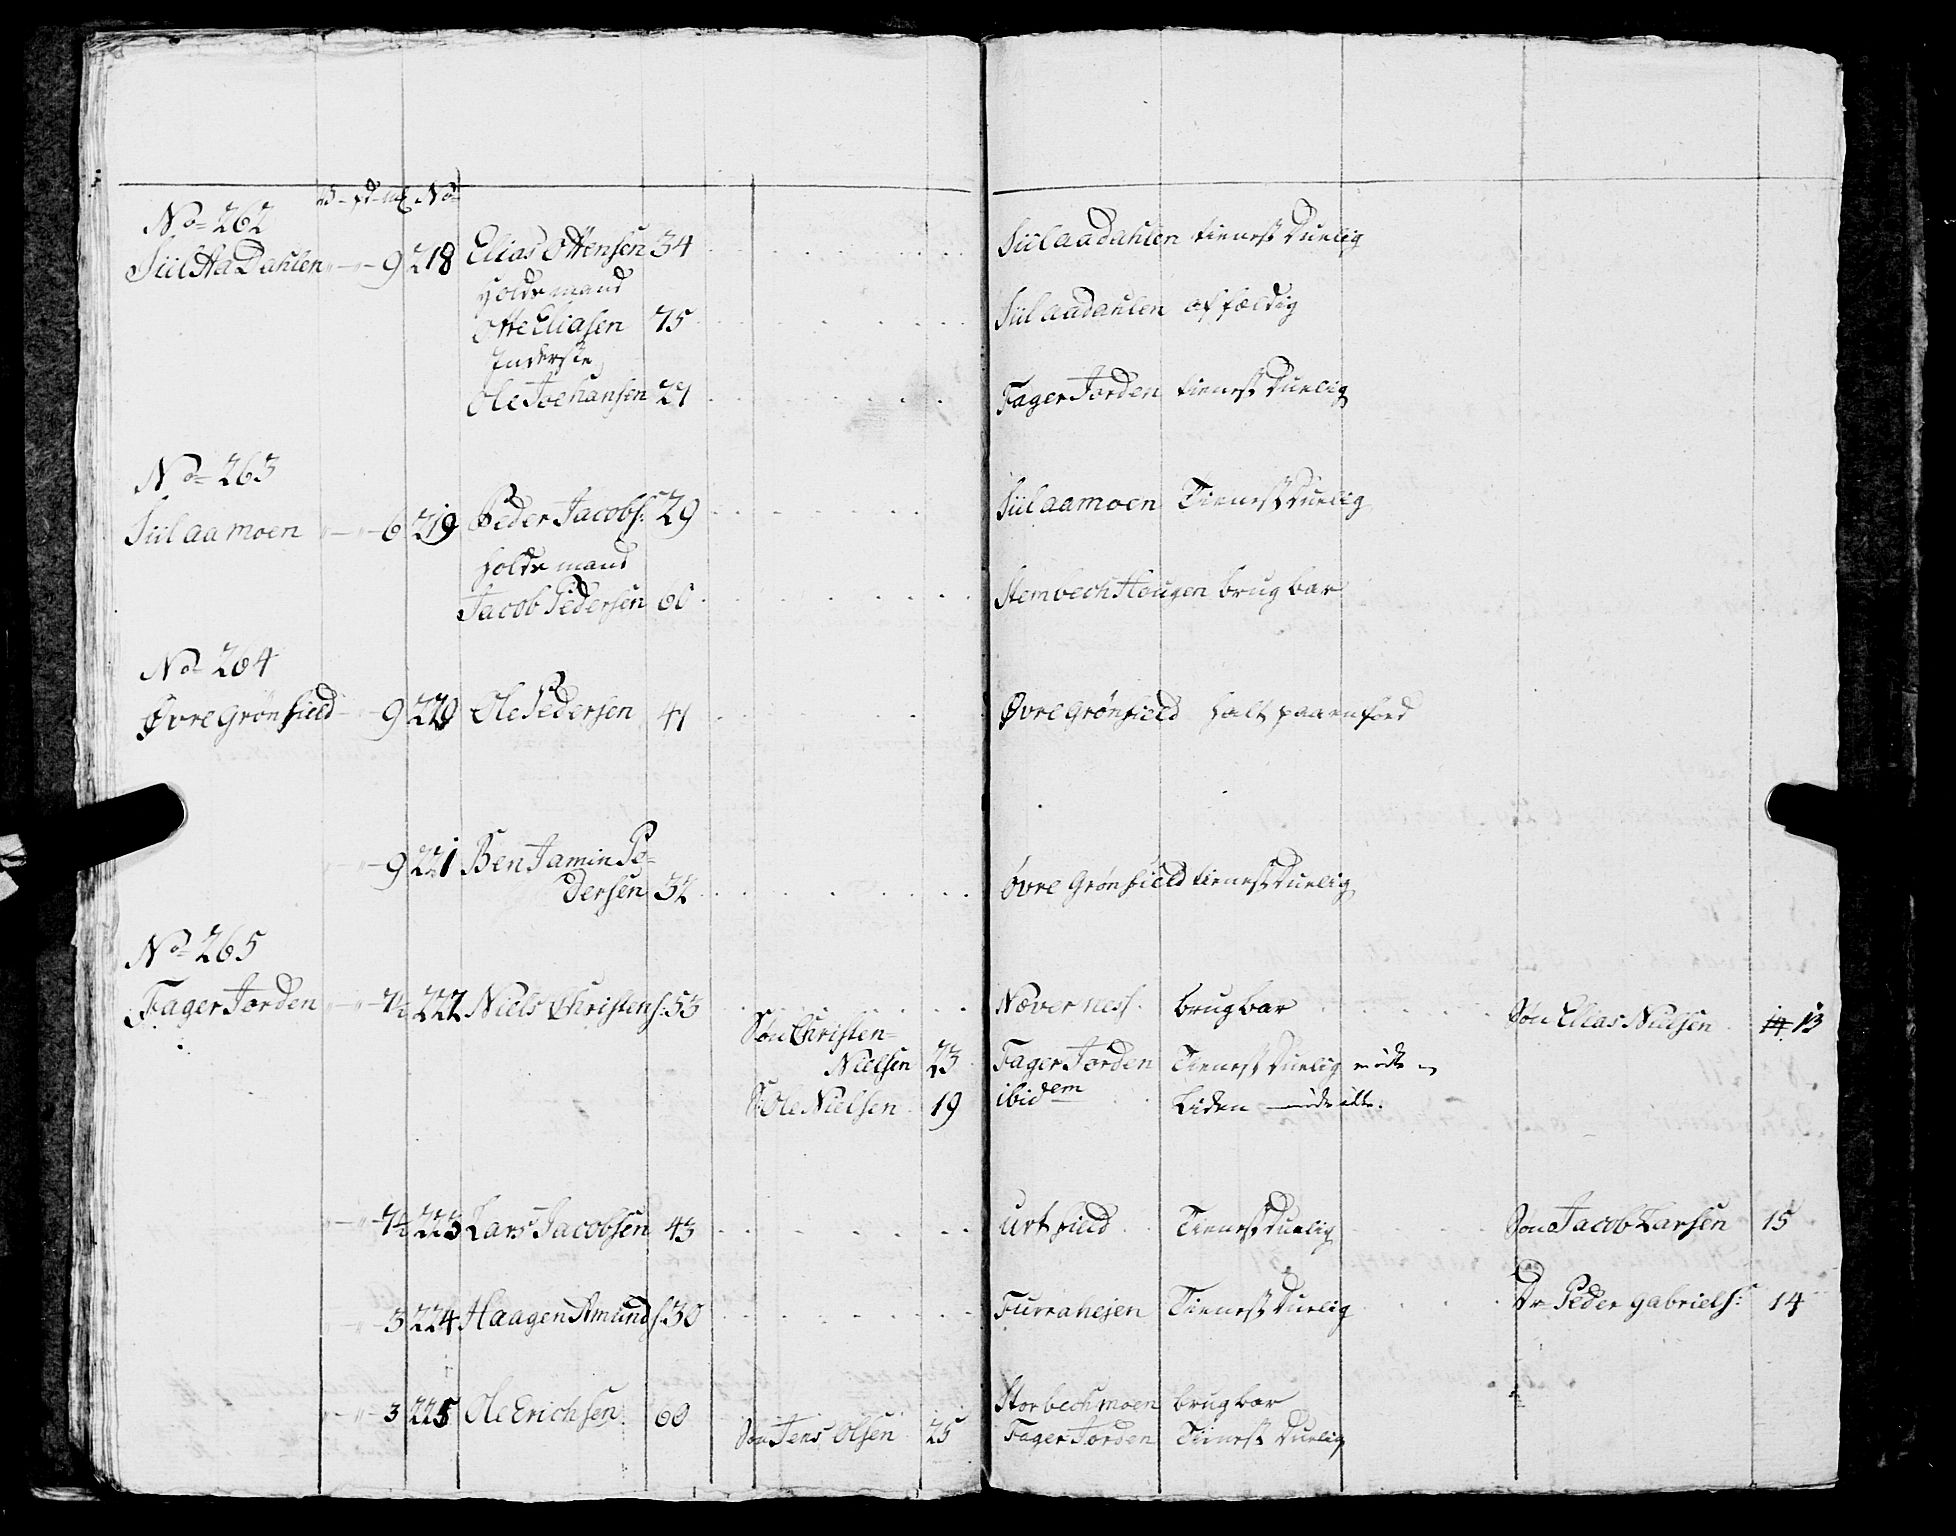 No 262
SiilAa Dahlen „ — „ — 9 218 Elias Ottensen 34 Siilaadahlen tienest Duelig
holdemand
Otte Eliasen 75 Siilaadahlen affældig
Inderste
Ole Joehansen 27 Fager Jorden tienest Duelig
No 263
Siilaamoen „ — „ — 6 219 Peder Jacobs: 29 Siilaamoen Tienest Duelig
holdemand
Jacob Pedersen 60 Stembech Hougen brugbar
No 264
Øvre Grønfield 9 220 Ole Pedersen 41 Øvre Grønfield halt paa en foed
„ — 9 221 BenJamin Pe-
dersen 32 Øvre Grønfield tienest Duelig
No 265
Fager Jorden „ — „ — 7½ 222 Niels Christens: 53 Nævernes. brugbar Søn Elias Nielsen 14 13
Søn Christen-
Nielsen 23 Fager Jorden Tienest Duelig mødt
S: Ole Nielsen 19 ibidem Liden
„ — „ — 7½ 223 Lars Jacobsen 43 Urtfield Tienest Duelig Søn Jacob Larsen 15
„ — 3 224 Haagen Amunds: 30 Furrahejen Tienest Duelig Dr Peder Gabriels: 14
„ — „ — 3 225 Ole Erichsen 60 Storbechmoen brugbar
Søn Jens Olsen 25 Fager Jorden Tienest Duelig